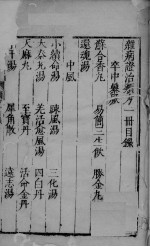 雜病證治類方一冊目錄
卒中暴厥
蘇合香丸　易簡三生飲　勝金丸
還魂湯
中風
小續命湯　疎風湯　三化湯
大秦艽湯　羌活愈風湯　四白丹
天麻丸　至寶丹　活命金丹
犀角散　遠志湯